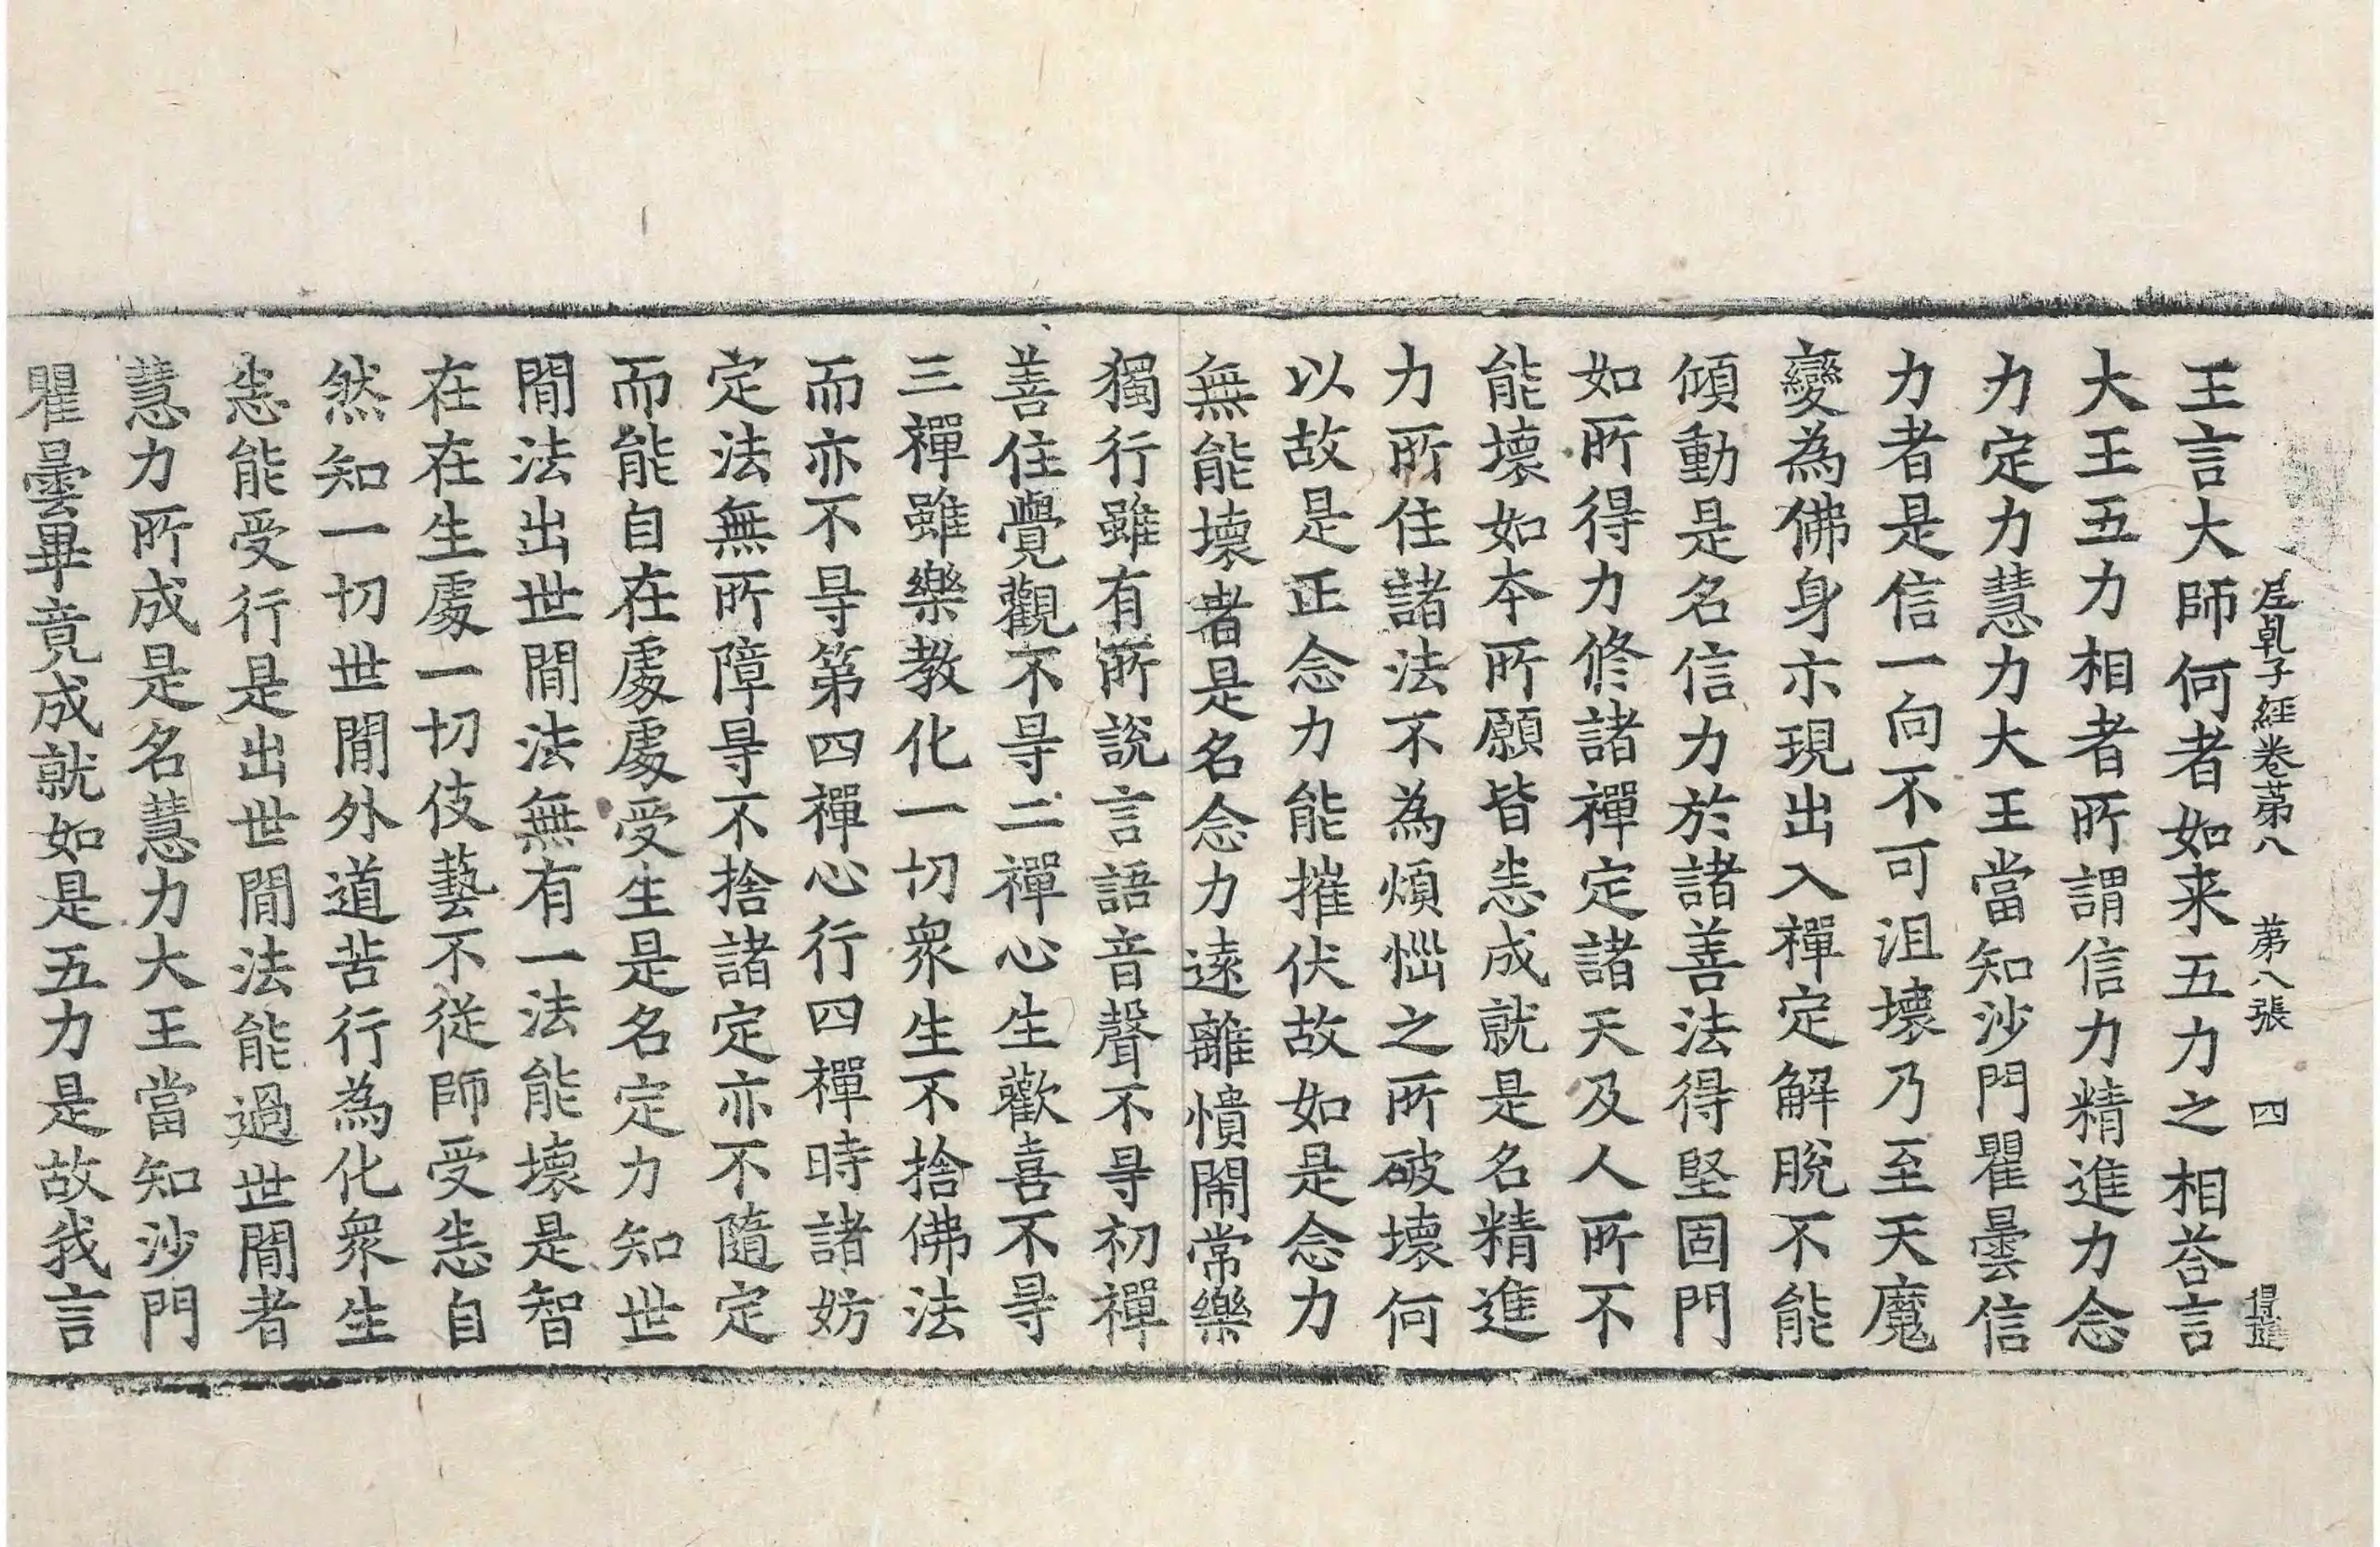 尼乹子経卷苐八 苐八張 四
王言大師何者如来五力之相荅言
大王五力相者所謂信力精進力念
力定力慧力大王當知沙門瞿曇信
力者是信一向不可沮壞乃至天魔
變為佛身示現出入禪定解脫不能
傾動是名信力於諸善法得堅固門
如所得力修諸禪定諸天及人所不
能壞如本所願皆悉成就是名精進
力所住諸法不為煩惱之所破壞何
以故是正念力能摧伏故如是念力
無能壞者是名念力遠離憒閙常樂
獨行雖有所說言語音聲不㝵初禪
善住覺觀不㝵二禪心生歡喜不㝵
三禪雖樂教化一切衆生不捨佛法
而亦不㝵第四禪心行四禪時諸妨
定法無所障㝵不捨諸定亦不隨定
而能自在處處受生是名定力知世
閒法出世閒法無有一法能壞是智
在在生處一切伎藝不從師受悉自
然知一切世閒外道苦行為化衆生
悉能受行是出世閒法能過世閒者
慧力所成是名慧力大王當知沙門
瞿曇畢竟成就如是五力是故我言